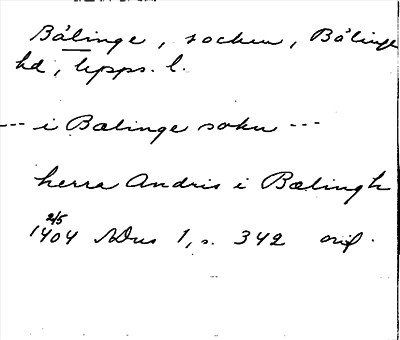 Bälinge, socken, Bälinge
hd, Upps. l.
--- i Bælinge sokn ---
herra Andris i Bælingh
2/5
1404 SDns 1, s. 342 orig.